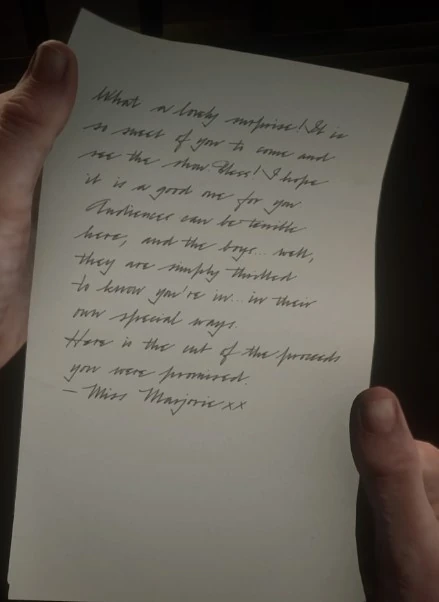 What a lovely surprise! It is
so sweet of you to come and
see the show Bless! I hope
it is a good one for you
Audiences can be terrible
here, and the boys... well,
they are simply thrilled
to know you're in... in their
own special ways.
Here is the cut of the proceeds
you were promised.
– Miss Marjorie xx